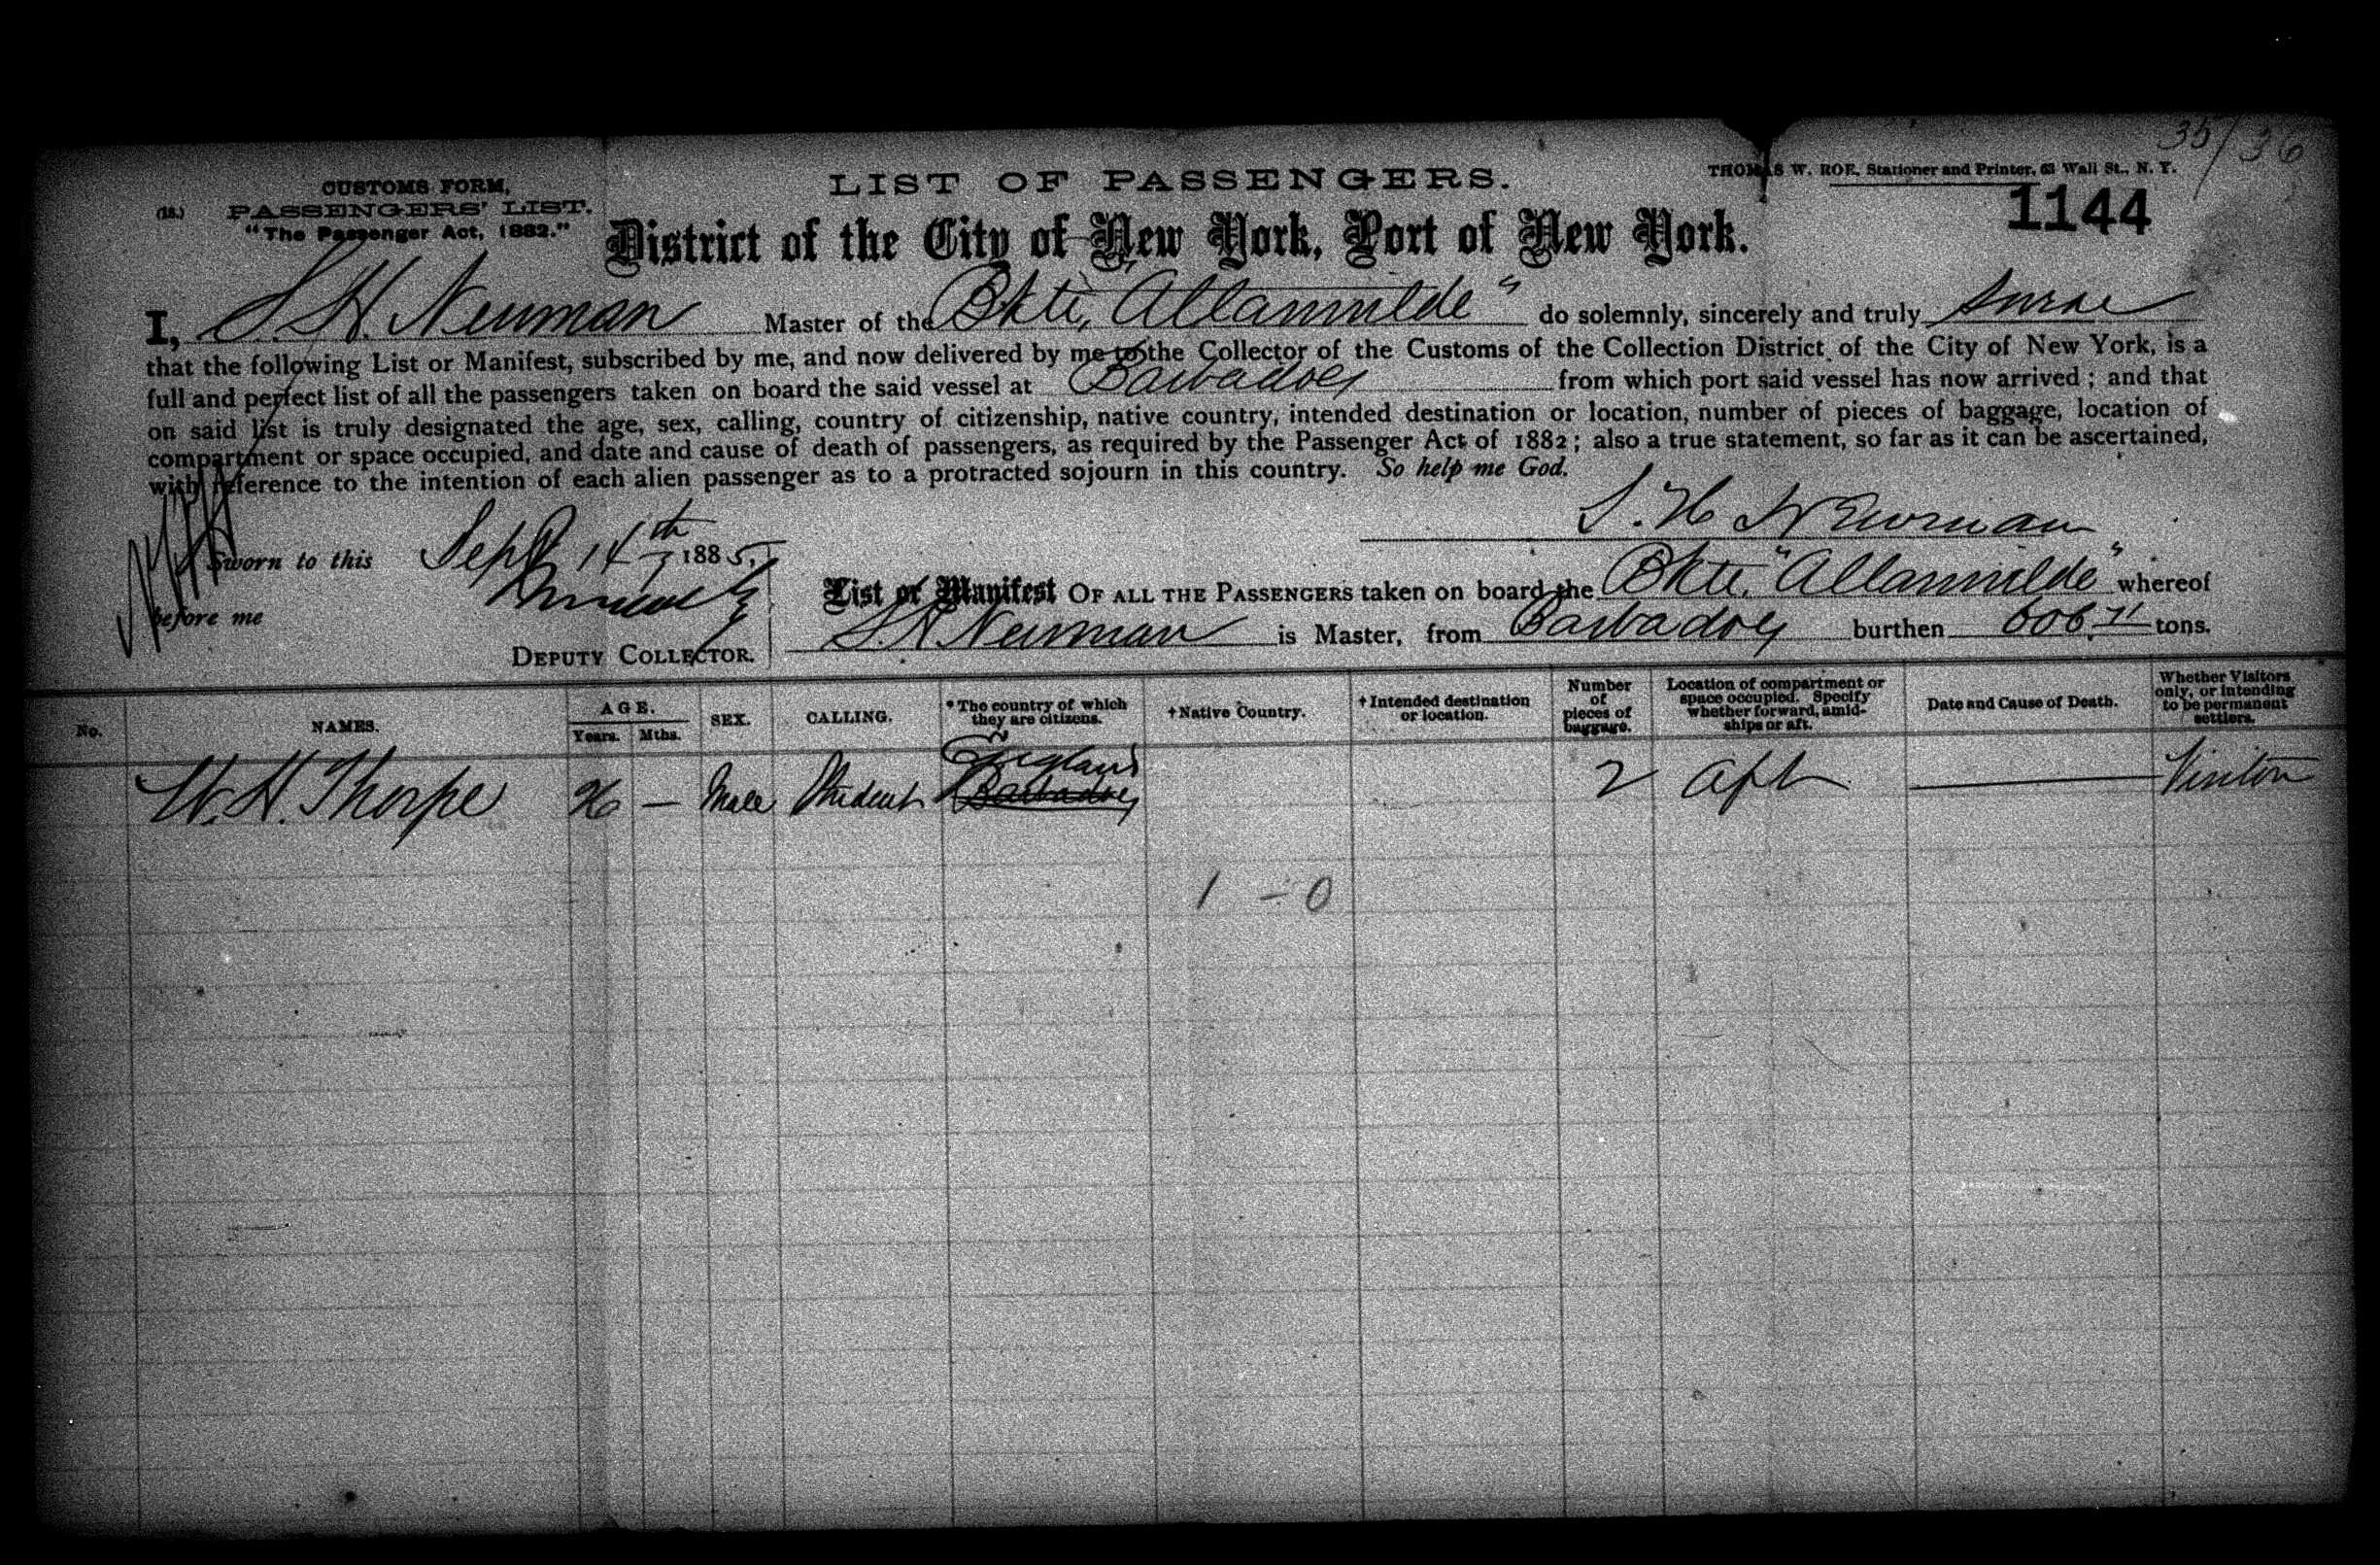 35/36
CUSTOMS FORM,
(18.) PASSENGERS' LIST.
"The Passenger Act, 1882."
LIST OF PASSENGERS.
THOMAS W. ROE, Stationer and Printer, 63 Wall St., N. Y.
1144
District of the City of New York, Port of New York.
I, S. H. Newman Master of the Bkti, "Allanwilde" do solemnly, sincerely and truly swear
that the following List or Manifest, subscribed by me, and now delivered by me to the Collector of the Customs of the Collection District of the City of New York, is a
full and perfect list of all the passengers taken on board the said vessel at Barbadoes from which port said vessel has now arrived ; and that
on said list is truly designated the age, sex, calling, country of citizenship, native country, intended destination or location, number of pieces of baggage, location of
compartment or space occupied, and date and cause of death of passengers, as required by the Passenger Act of 1882 ; also a true statement, so far as it can be ascertained,
with reference to the intention of each alien passenger as to a protracted sojourn in this country. So help me God.
S. H Newman
Sworn to this Sept 14th 1885,
before me
DEPUTY COLLECTOR.
List or Manifest OF ALL THE PASSENGERS taken on board the Bkti. "Allanwilde" whereof
S. H Newman is Master, from Barbadoes burthen 606.71 tons.
No. NAMES. AGE. Years. Mths. SEX. CALLING. *The country of which they are citizens. †Native Country. †Intended destination or location. Number of pieces of baggage. Location of compartment or space occupied. Specify whether forward, amidships or aft. Date and Cause of Death. Whether Visitors only, or intending to be permanent settlers.
England
W. H. Thorpe 26 — Male Student Barbadoes 2 aft — Visitor
1 - 0